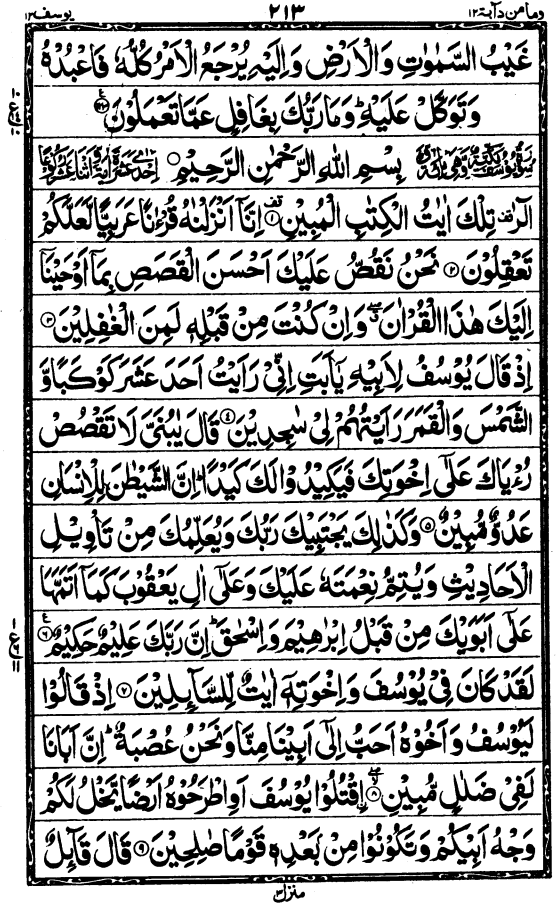 وما من دآبة ١٢ ٢١٣ يوسف ١٢
غَيْبُ السَّمٰوٰتِ وَالْاَرْضِ وَاِلَيْهِ يُرْجَعُ الْاَمْرُ كُلُّهٗ فَاعْبُدْهُ
وَتَوَكَّلْ عَلَيْهِ ؕ وَمَا رَبُّكَ بِغَافِلٍ عَمَّا تَعْمَلُوْنَ
بِسْمِ اللهِ الرَّحْمٰنِ الرَّحِيْمِ
الٓرٰ ۫ تِلْكَ اٰيٰتُ الْكِتٰبِ الْمُبِيْنِ ۝١ اِنَّاۤ اَنْزَلْنٰهُ قُرْءٰنًا عَرَبِيًّا لَّعَلَّكُمْ
تَعْقِلُوْنَ ۝٢ نَحْنُ نَقُصُّ عَلَيْكَ اَحْسَنَ الْقَصَصِ بِمَاۤ اَوْحَيْنَاۤ
اِلَيْكَ هٰذَا الْقُرْاٰنَ ۖ وَاِنْ كُنْتَ مِنْ قَبْلِهٖ لَمِنَ الْغٰفِلِيْنَ ۝٣
اِذْ قَالَ يُوْسُفُ لِاَبِيْهِ يٰۤاَبَتِ اِنِّيْ رَاَيْتُ اَحَدَ عَشَرَ كَوْكَبًا وَّ
الشَّمْسَ وَالْقَمَرَ رَاَيْتُهُمْ لِيْ سٰجِدِيْنَ ۝٤ قَالَ يٰبُنَيَّ لَا تَقْصُصْ
رُءْيَاكَ عَلٰۤى اِخْوَتِكَ فَيَكِيْدُوْا لَكَ كَيْدًا ؕ اِنَّ الشَّيْطٰنَ لِلْاِنْسَانِ
عَدُوٌّ مُّبِيْنٌ ۝٥ وَكَذٰلِكَ يَجْتَبِيْكَ رَبُّكَ وَيُعَلِّمُكَ مِنْ تَاْوِيْلِ
الْاَحَادِيْثِ وَيُتِمُّ نِعْمَتَهٗ عَلَيْكَ وَعَلٰۤى اٰلِ يَعْقُوْبَ كَمَاۤ اَتَمَّهَا
عَلٰۤى اَبَوَيْكَ مِنْ قَبْلُ اِبْرٰهِيْمَ وَاِسْحٰقَ ؕ اِنَّ رَبَّكَ عَلِيْمٌ حَكِيْمٌ ۝٦
لَقَدْ كَانَ فِيْ يُوْسُفَ وَاِخْوَتِهٖۤ اٰيٰتٌ لِّلسَّآئِلِيْنَ ۝٧ اِذْ قَالُوْا
لَيُوْسُفُ وَاَخُوْهُ اَحَبُّ اِلٰۤى اَبِيْنَا مِنَّا وَنَحْنُ عُصْبَةٌ ؕ اِنَّ اَبَانَا
لَفِيْ ضَلٰلٍ مُّبِيْنِ ۝٨ اِقْتُلُوْا يُوْسُفَ اَوِ اطْرَحُوْهُ اَرْضًا يَّخْلُ لَكُمْ
وَجْهُ اَبِيْكُمْ وَتَكُوْنُوْا مِنْۢ بَعْدِهٖ قَوْمًا صٰلِحِيْنَ ۝٩ قَالَ قَآئِلٌ
منزل ٣